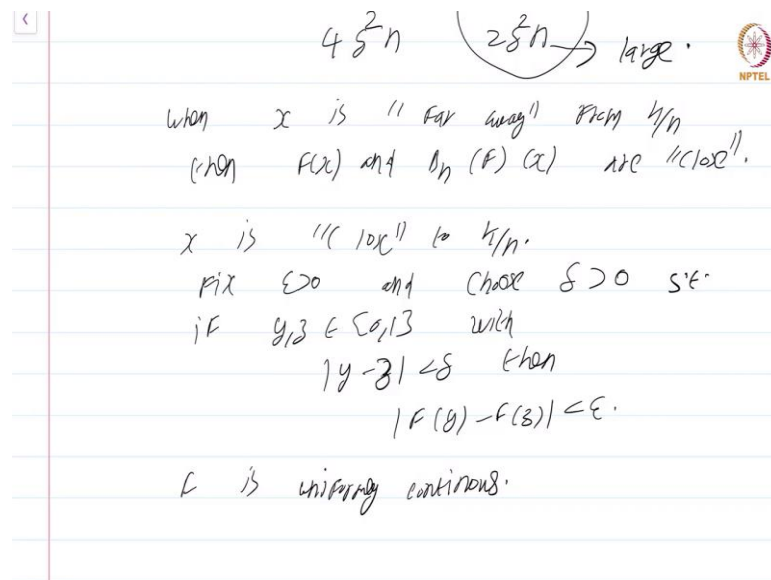 4δ²n 2δ²n → large.
NPTEL
when x is "Far away" From k/n
then F(x) and Bn (F) (x) are "close".
x is "close" to k/n.
Fix ε>0 and choose δ>0 s.t.
if y,z ∈ [0,1] with
|y-z| <δ then
|F(y) -F(z)| <ε.
F is uniformly continous.